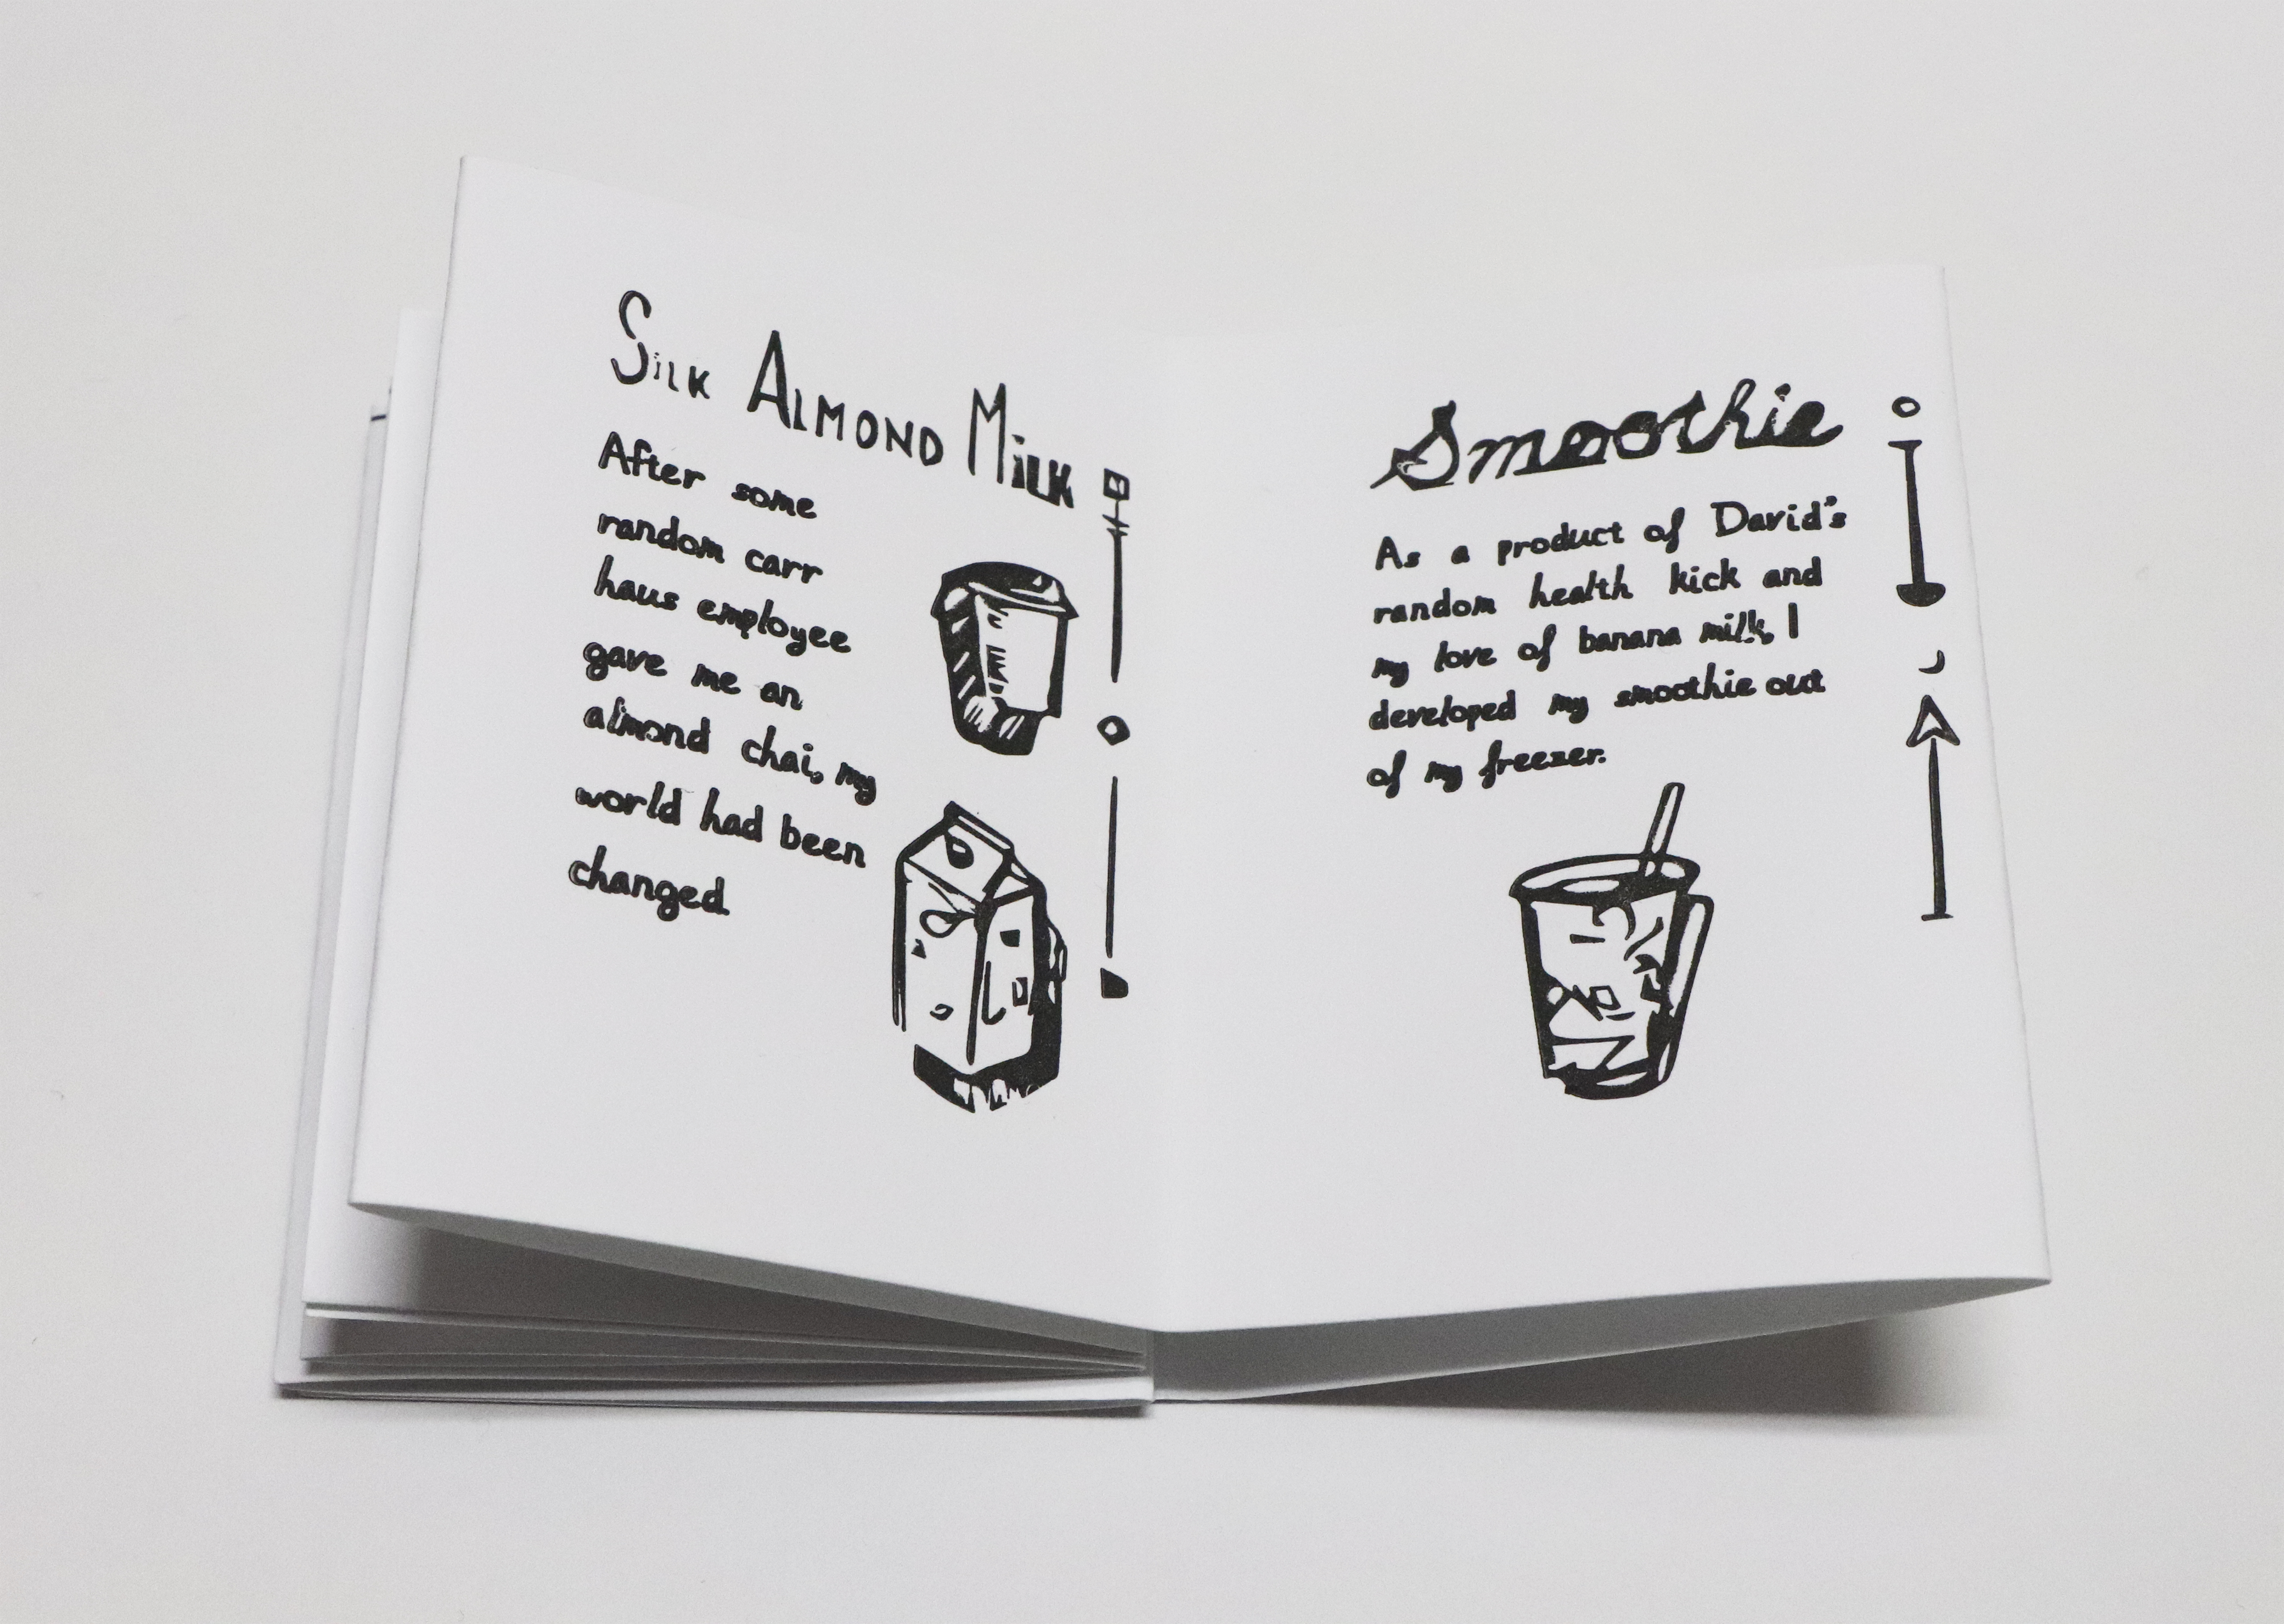 SiLK ALMOND MiLK
After some
random carr
haus employee
gave me an
almond chai, my
world had been
changed.
Smoothie
As a product of David's
random health kick and
my love of banana milk, I
developed my smoothie out
of my freezer.